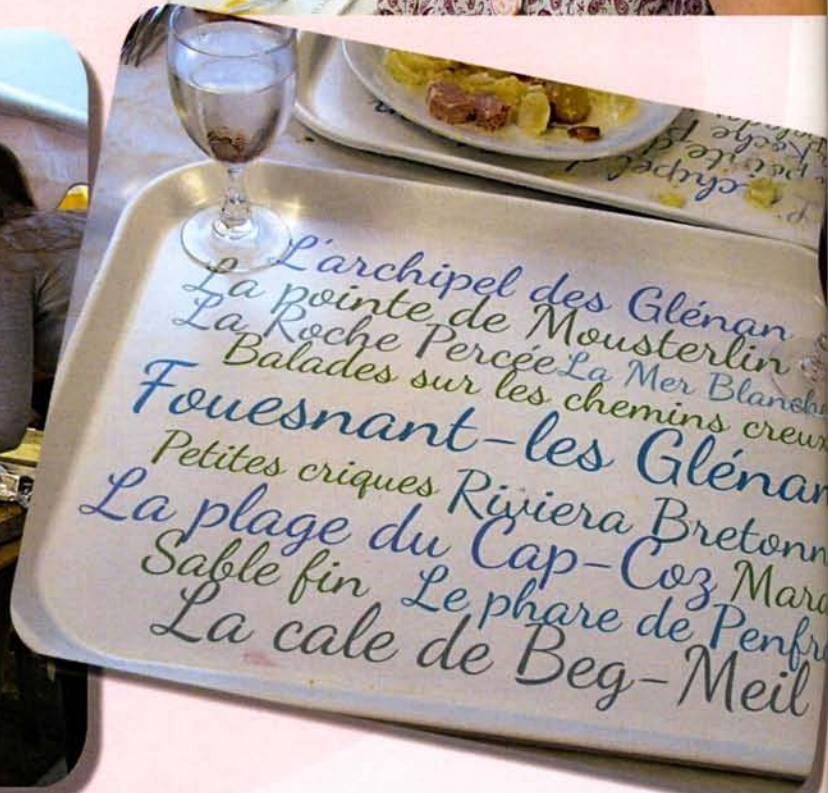 L'archipel des Glénan
La pointe de Mousterlin
La Roche Percée La Mer Blanche
Balades sur les chemins creux
Fouesnant-les Glénan
Petites criques Riviera Bretonn
La plage du Cap-Coz
Sable fin Le phare de Penfr
La cale de Beg-Meil